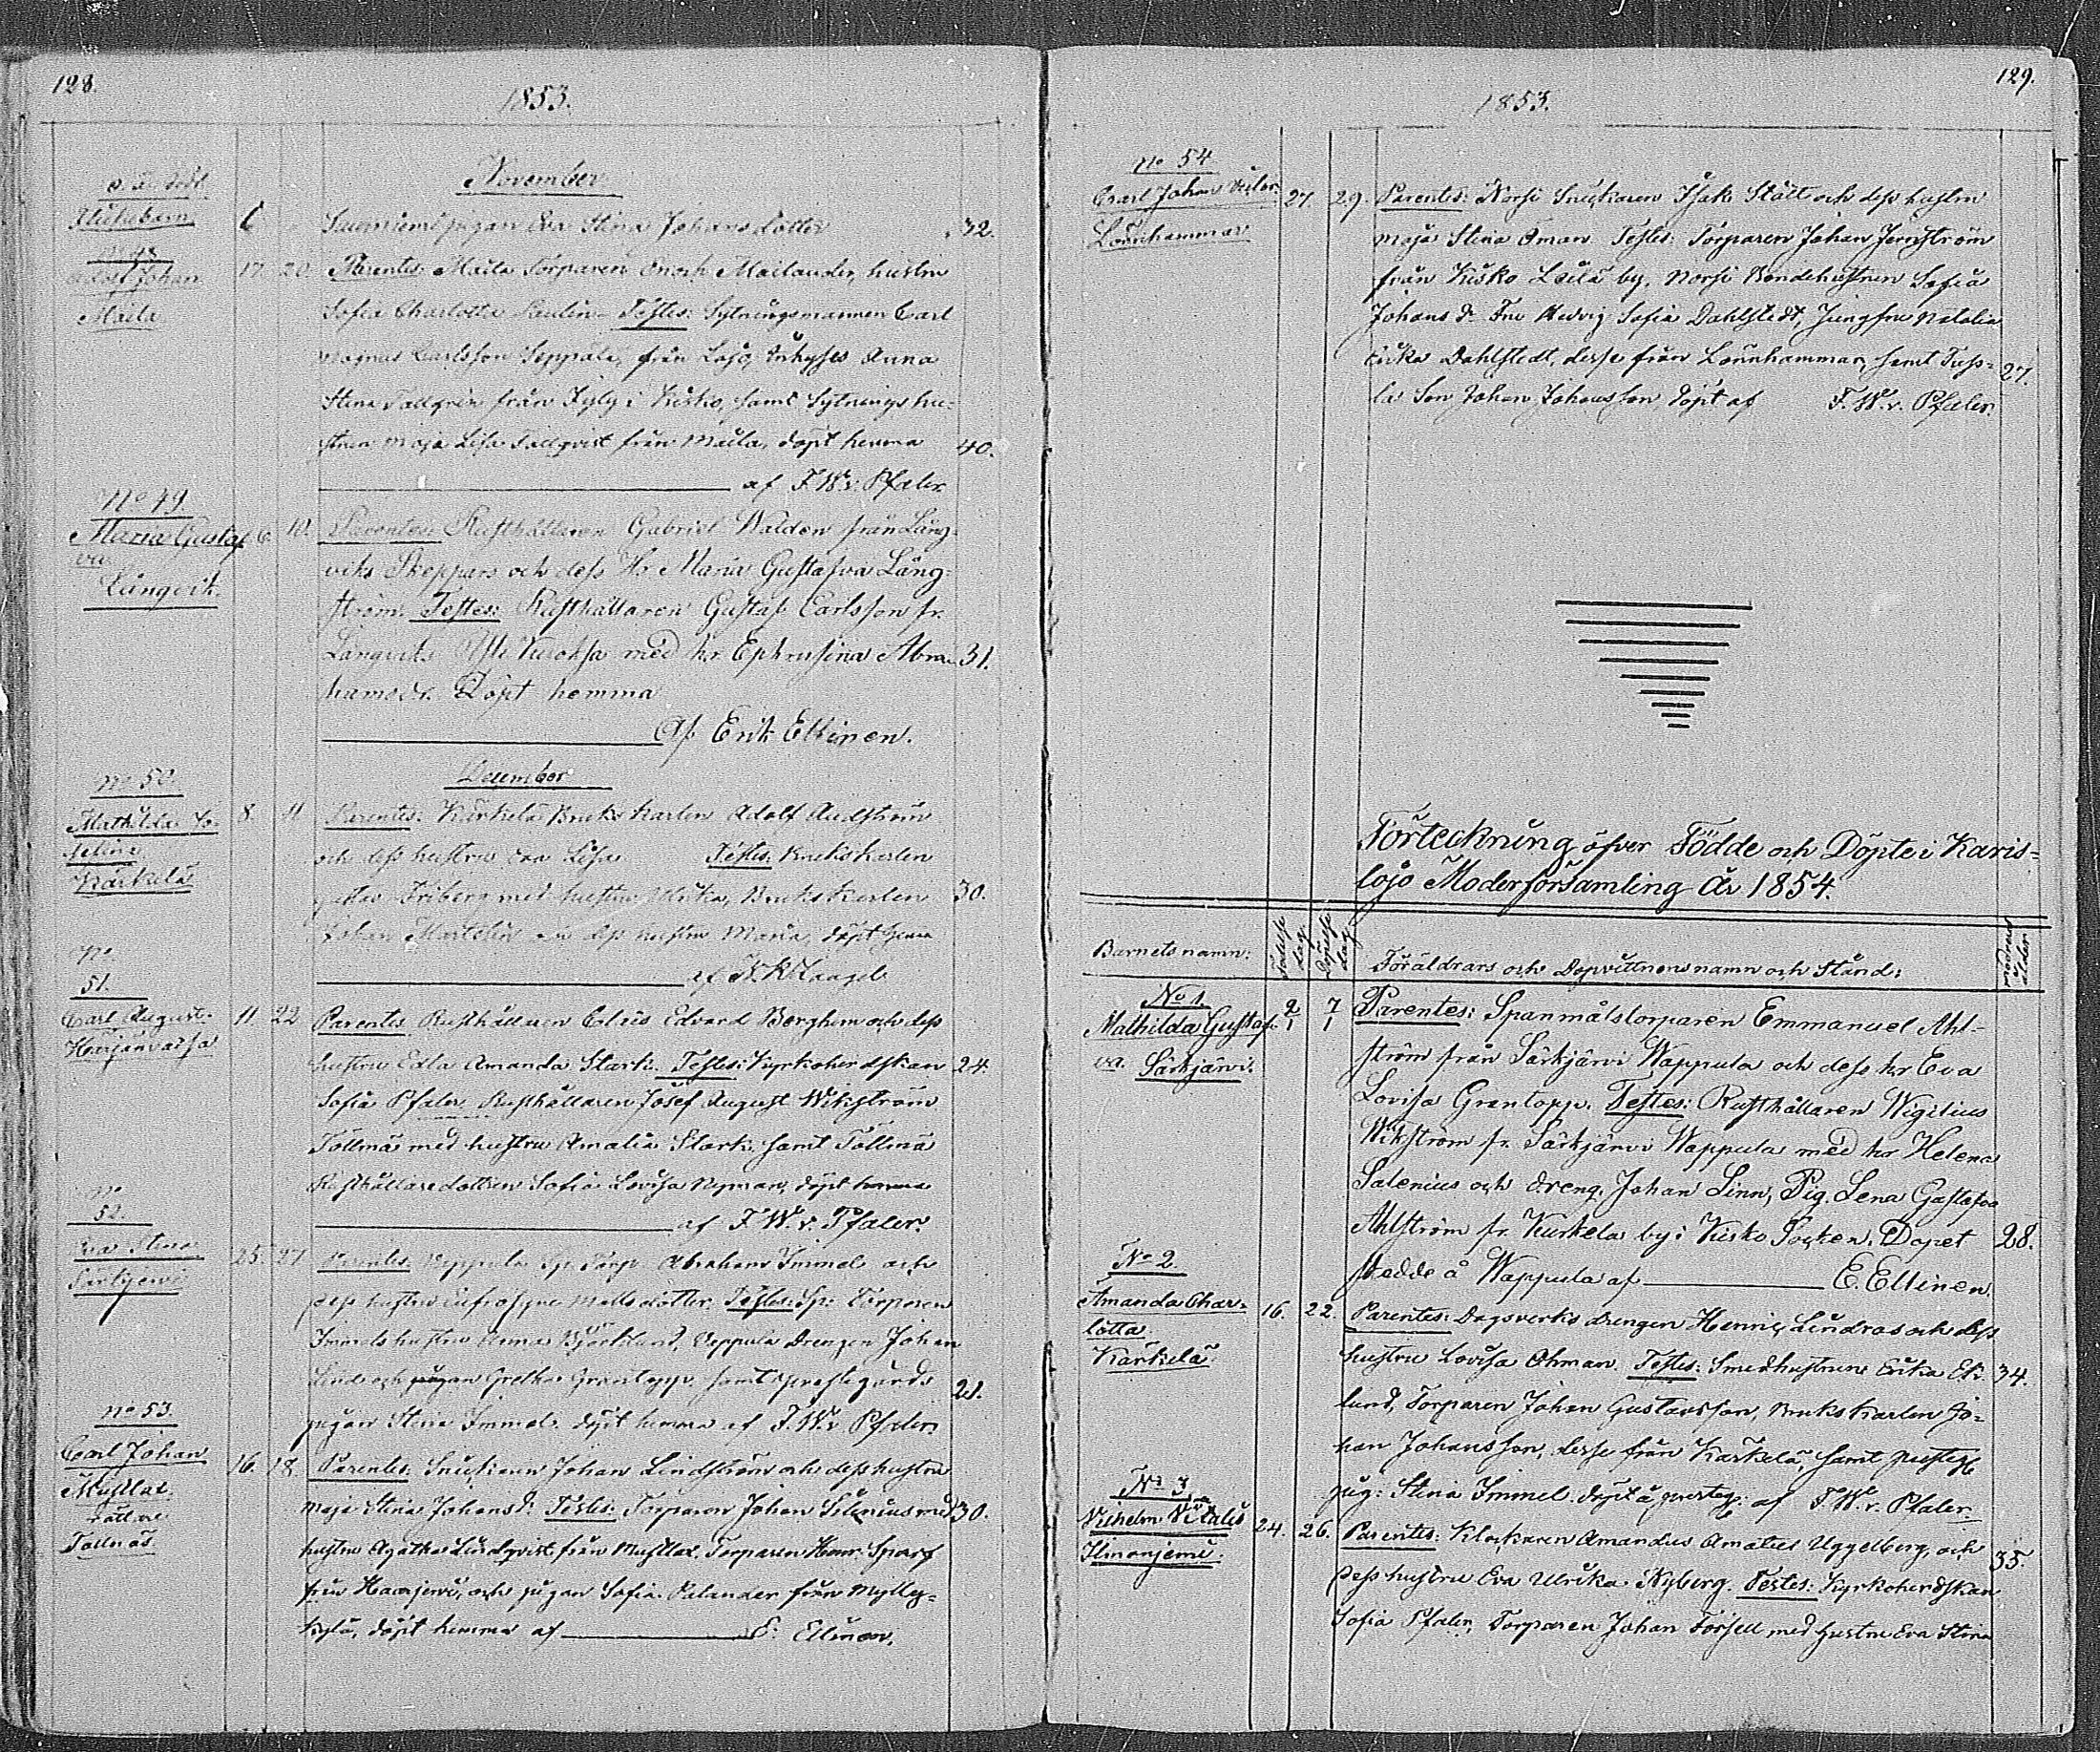 128.
1853.
November
o. ä. född
Flickebarn 6 Suurniemi pigan Eva Stina Johansdotter 32.
No 48
Adolf Johan 17. 20. Parentes: Maila Torparen Enoch Mailander, hustru
Maila
Sofia Charlotta Paulin. Testes: Sytningsmannen Carl
Magnus Carlsson Seppälä, från Lojo, Inhyses Anna
Stina Tallqvist från Kyly i Kisko, samt Sytningshu-
strun Maja Lisa Tallqvist från Maila, döpt hemma 40.
af F. W. v. Pfaler.
No 49.
Maria Gustaf- 6. 10. Parentes: Rusthållaren Gabriel Walden från Lång-
va
Långvik.
viks Skeppars och dess Hr Maria Gustafva Lång-
ström. Testes: Rusthållaren Gustaf Carlsson fr.
Långviks med hr Ephrusina Abra- 31.
hamsdr. Döpt hemma
Af Erik Ellinen.
December
No 50.
Mathilda Jo- 8. 11 Parentes: Kärkelä Bruks Karlen Adolf Audström
sefina
Kärkelä
och dess hustru Eva Lisa Testes: Brukskarlen
Gustav Friberg med hustru Ulrika, Bruks Karlen 30.
Johan Martelin och dess hustru Maria, döpt hemma
af
No
51.
Carl August 11. 22 Parentes Rusthållaren Claës Edvard Berghem och dess
Harjanvatsa
hustru Edla Amanda Stark. Testes: Kyrkoherdskan 24.
Sofia Pfaler Rusthållaren Josef August Wikström
Tallnä med hustru Amalia Stark. samt Tallnä
Rusthållaredottren Sofia Lovisa Nyman, döpt hemma
af F. W. v. Pfaler.
No
52.
Eva Stina 25. 27 Parentes: Veppula Sp. Torp. Abraham Immel och
Särkjervi
dess hustru Eufrosyne Matsdotter. Testes: Sp: Torparen
Immels hustru Anna Björklund, Veppula Drengen Johan
Lind och pigan Gretha Grantopp. samt prestgårds 28.
pigan Stina Immel. döpt hemma af F. W. v. Pfaler
No 53.
Carl Johan 16. 18. Parentes: Snickaren Johan Lindström och dess hustru
Mustlax
Tallnäs.
Maja Stina Johansd: Testes: Torparen Johan Silenius med 30.
hustru Agatha Lindqvist från Mustlax, Torparen Henr. Sparf
från Haarjervi, och pigan Sofia Palander från Mylly-
kylä, döpt hemma af E: Ellinen.
129.
1853.
No 54
Carl Johan 27. 29. Parentes: Norsi Snickaren Isak Stålt och dess hustru
Lönnhammar
Maja Stina Åman Testes: Torparen Johan Jernström
från Kisko Leilä by, Norsi Bondehustrun Sofia
Johans dr Fru Hedvig Sofia Dahlstedt, Jungfru Natalia
Erika Dahlstedt, desse från Lönnhammar, samt 27.
la Son Johan Johansson, döpt af F. W. v. Pfaler.
Förteckning öfver Födde och Döpte i Karis-
lojo Moderförsamling År 1854.
Barnets namn: Födelse dag Döpelse dag Föräldrars och Dopvittnens namn och Stånd: Modrens ålder
No 1. 2/1 7/1 Parentes: Spanmålstorparen Emmanuel Ahl-
Mathilda Gustaf-
va. Särkjärvi.
ström från Särkjärvi Wappula och dess hr Eva
Lovisa Grantopp. Testes: Rusthållaren Wigilius
Wikström fr. Särkjärvi Wappula med hr Helena
Salenius och dreng. Johan Linn, Pig. Lena Gustafva
Ahlström fr. Kurkela by i Kisko Socken. Dopet 28.
skedde å Wappula af E. Ellinen.
No 2.
Amanda Char- 16. 22. Parentes: Dagsverks drengen Henric Lindroos och dess
lotta
Kärkelä
hustru Lovisa Öhman. Testes: Smedhustrun Erika Ek- 34.
lund, Torparen Johan Gustavsson, Bruks Karlen Jo-
han Johansson, desse från Kärkelä, samt prestegs
pig: Stina Immel. döpt å presteg: af F. W. v. Pfaler.
No 3.
Vilhelm Vitalis 24. 26. Parentes: Klockaren Amandus Amatus Uggelberg, och 35.
Ilmonjemi.
dess hustru Eva Ulrika Nyberg. Testes: Kyrkoherdskan
Sofia Pfaler, Torparen Johan Forsell med hustru Eva Stina